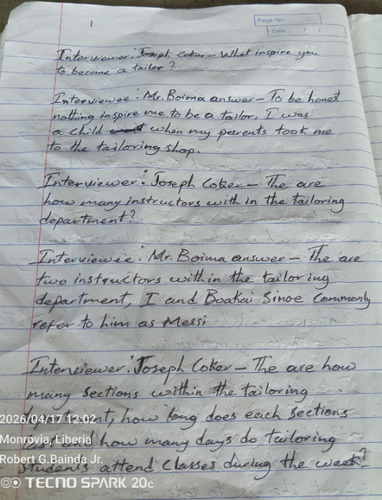 1
Page No.
Date: / /
Interviewer: Joseph Coker - What inspire you
to become a tailor?
Interviewee: Mr. Boima answer - To be honest
nothing inspire me to be a tailor, I was
a child when my parents took me
to the tailoring shop.
Interviewer: Joseph Coker - The are
how many instructors with in the tailoring
department?
Interviewee: Mr. Boima answer - The are
two instructors within the tailoring
department, I and Boakai Sinoe Commonly
refer to him as Messi
Interviewer: Joseph Coker - The are how
many sections within the tailoring
how long does each sections
how many days do tailoring
students attend classes during the week?
2026/04/17 12:02
Monrovia, Liberia
Robert G.Bainda Jr.
TECNO SPARK 20C